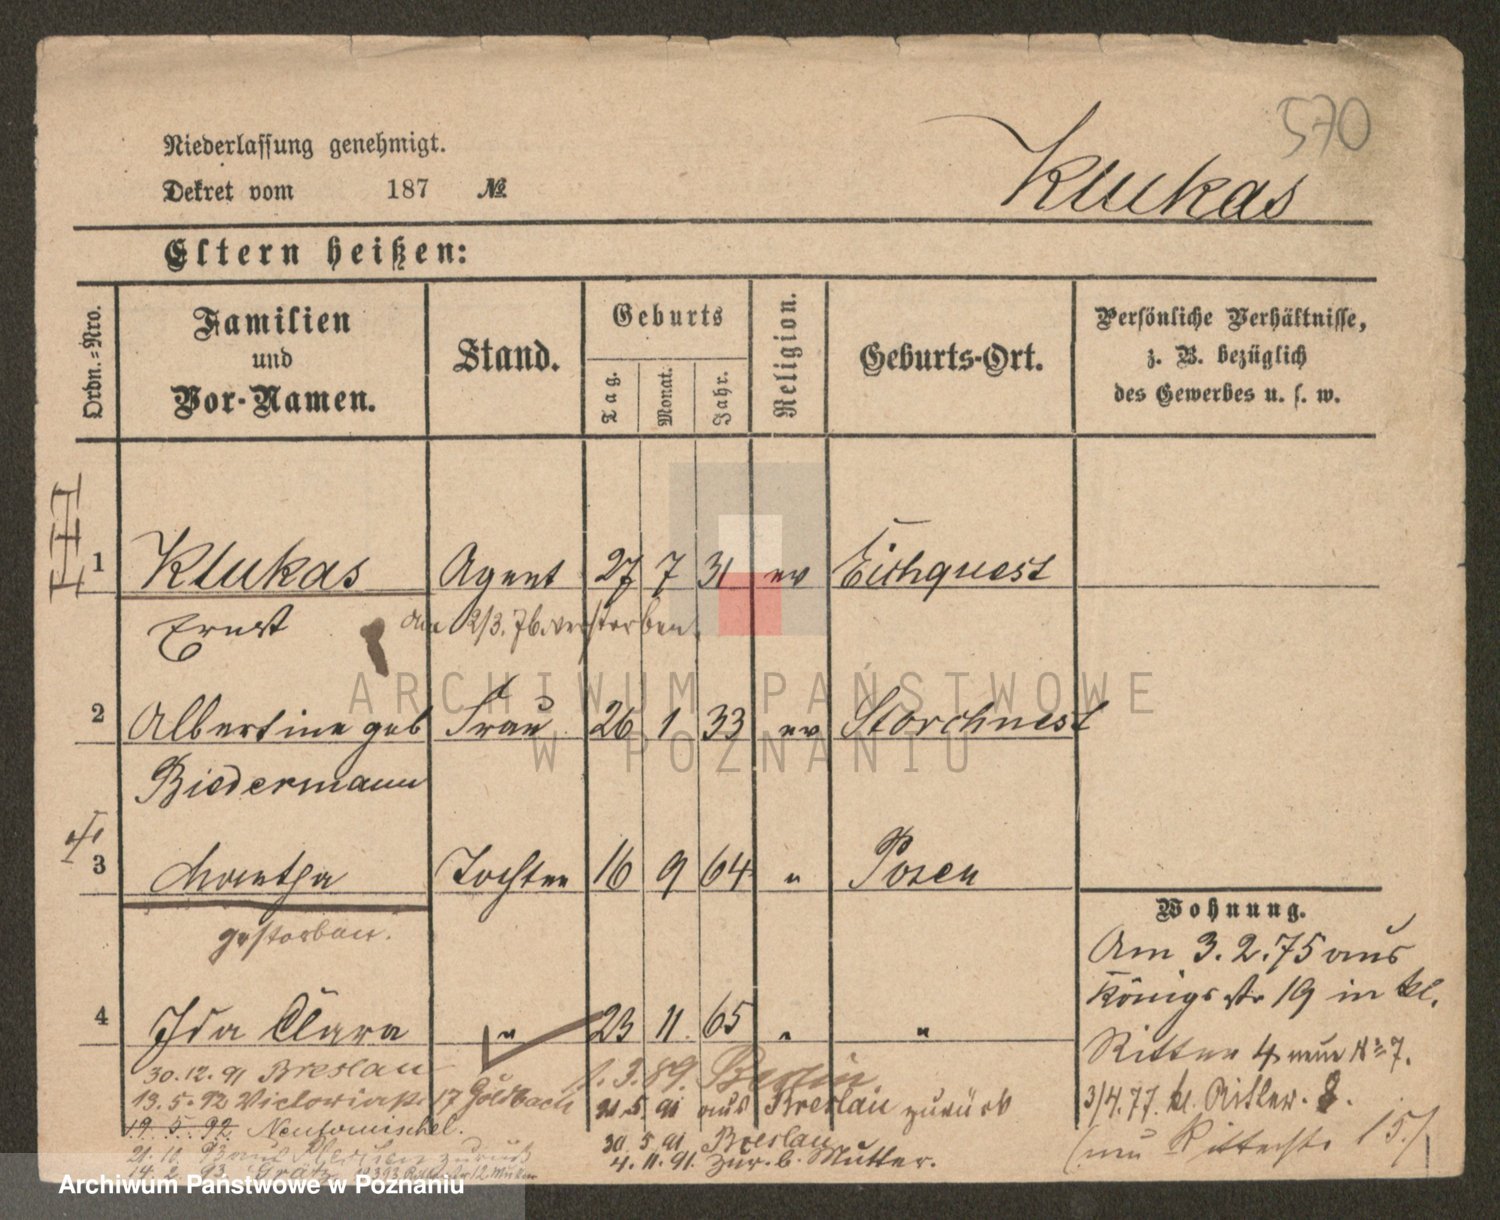 570
Niederlassung genehmigt.
Dekret vom 187 №
Klukas
Eltern heißen:
Ordn.=Nro.
Familien
und
Vor-Namen.
Stand.
Geburts
Tag.
Monat.
Jahr.
Religion.
Geburts-Ort.
Persönliche Verhältnisse,
z. B. bezüglich
des Gewerbes u. s. w.
1 Klukas Agent 27 7 31 ev Eichquest
Ernst
am 2/3. 76. verstorben.
2 Albertine geb Frau 26 1 33 ev Storchnest
Biedermann
3 Martha Tochter 16 9 64 " Posen
gestorben.
4 Ida Clara " 23 11 65 " "
Wohnung.
Am 3. 2. 75 aus
Königsstr 19 in kl.
Ritter 4 neue № 7.
3/4. 77. kl. Ritter. 8.
(neu Ritterstr 15.)
30. 12. 91 Breslau
13. 5. 92 Victoriastr. 17 Goldbach
19. 5. 92 Neutomischel.
21. 11. 93 aus zurück
14. 2. 93 Grätz
1. 3. 89. Berlin
21. 5 91 aus Breslau zurück
30. 5. 91. Breslau
4. 11. 91. zur. b. Mutter.
ARCHIWUM PAŃSTWOWE
W POZNANIU
Archiwum Państwowe w Poznaniu